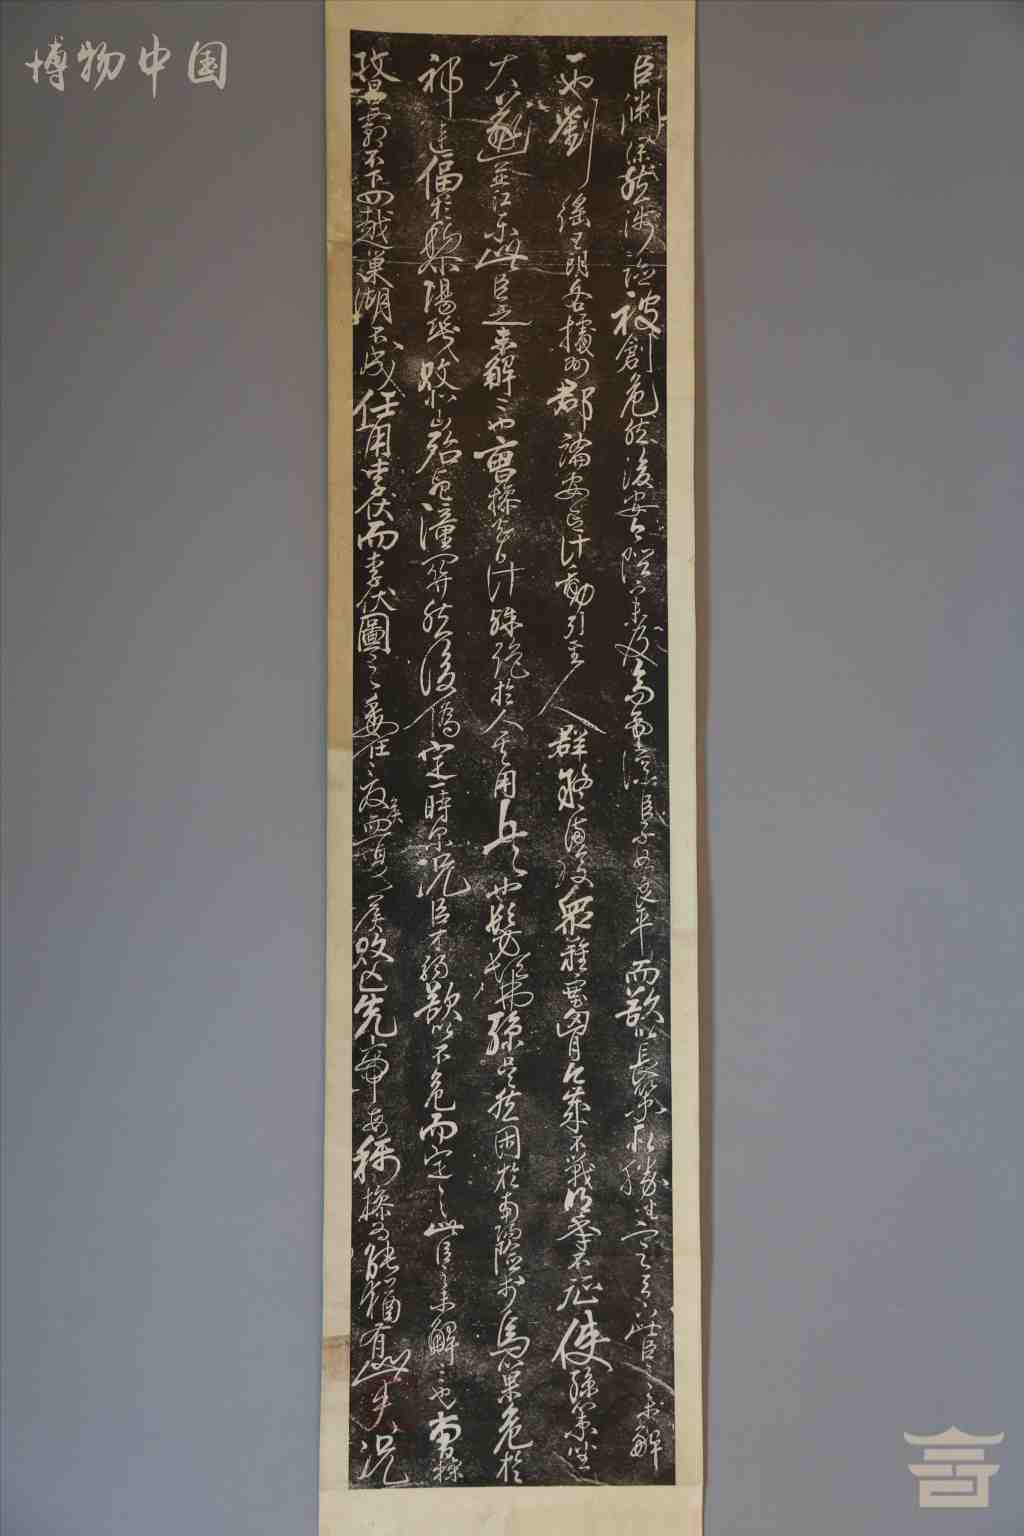 臣淵深然涉險被創危然後安今陛下未及高帝謀臣不如良平而欲以長策取勝坐定天下此臣之未解
一也劉繇王朗各據州郡論安言計動引聖人群疑滿腹衆難塞胷今歲不戰明年不征使孫策坐
大遂並江東此臣之未解二也曹操智計殊絶於人其用兵也髣髴孫吳然困於南險於烏巢危於
祁連偪於黎陽幾敗北山殆死潼關然後僞定一時爾況臣才弱欲以不危而定之此臣之未解三也曹操
攻昌霸不下四越巢湖不成任用李伏而李伏圖之委任夏侯而夏侯敗亡先帝每稱操為能猶有此失況
博物中国